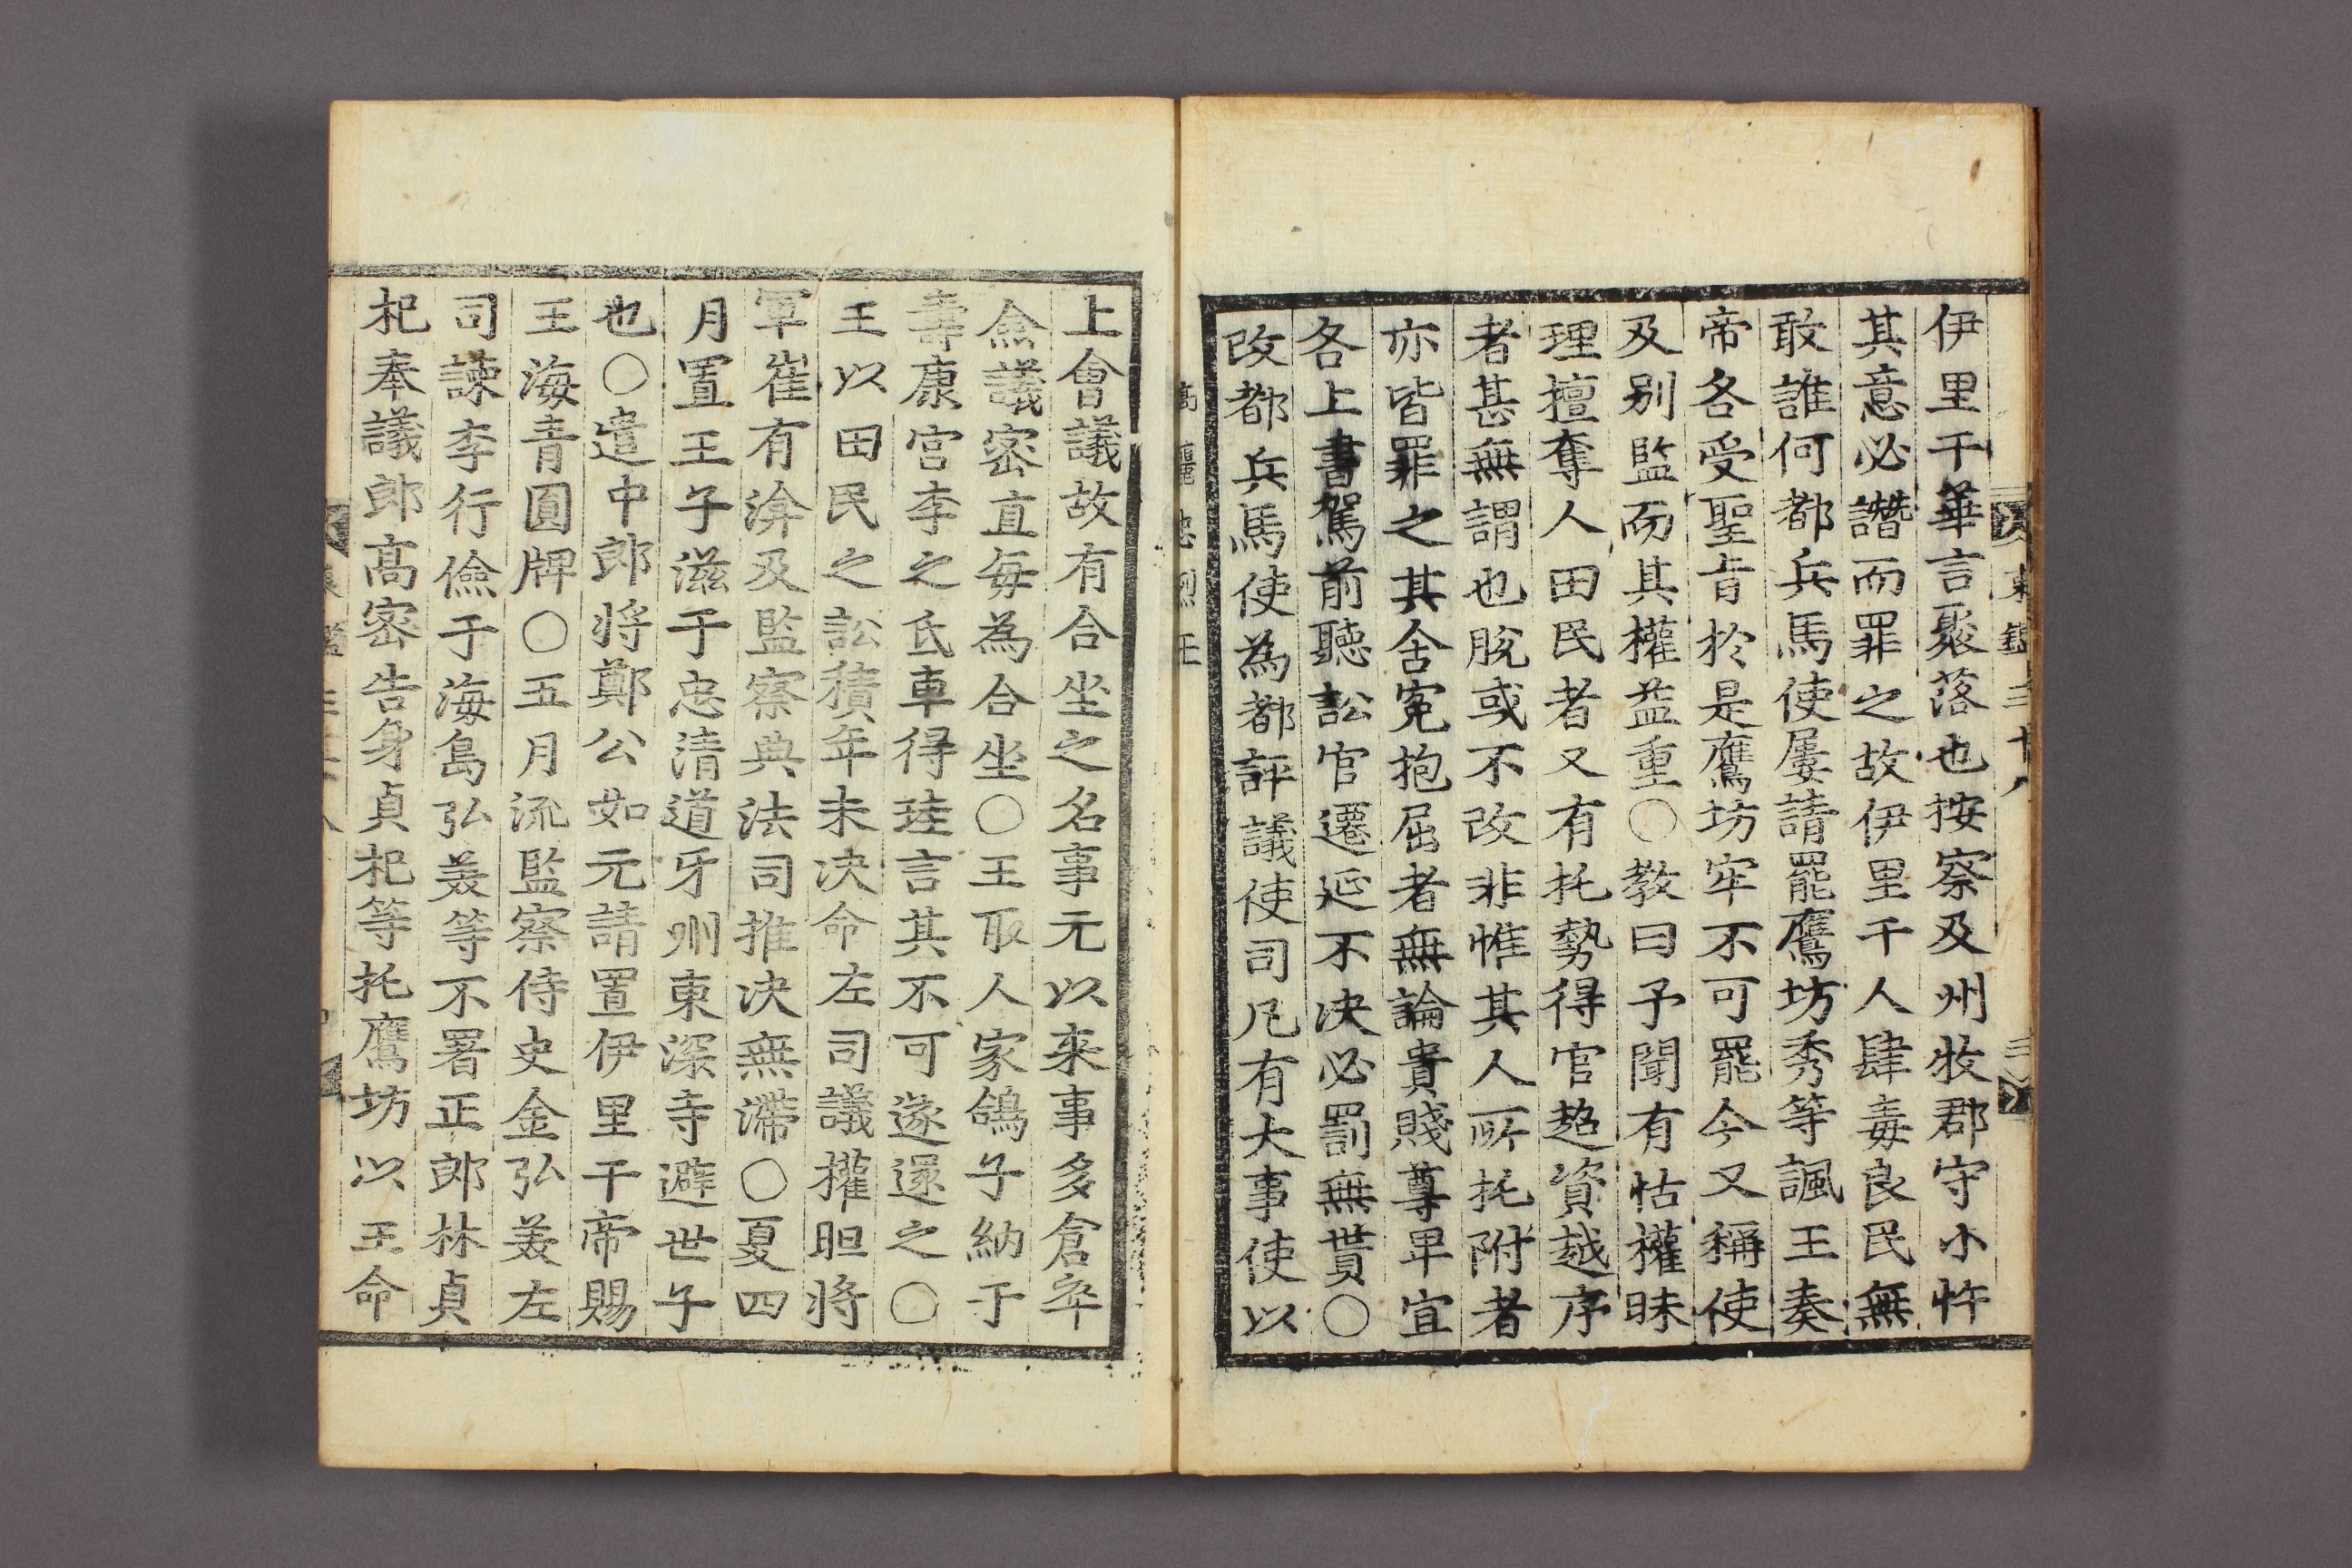 伊里干華言聚落也按察及州牧郡守小忤
其意必譖而罪之故伊里干人肆毒良民無
敢誰何都兵馬使屢請罷鷹坊秀等諷王奏
帝各受聖旨於是鷹坊牢不可罷今又稱使
及别監而其權益重○教曰予聞有怙權昧
理擅奪人田民者又有托勢得官超資越序
者甚無謂也脫或不改非惟其人所托附者
亦皆罪之其含寃抱屈者無論貴賤尊卑宜
各上書駕前聽訟官遷延不決必罰無貰○
改都兵馬使為都評議使司凡有大事使以
上會議故有合坐之名事元以来事多倉卒
僉議密直每為合坐○王取人家鴿子納于
壽康宮李之氐車得珪言其不可遂還之○
王以田民之訟積年未決命左司議權㫜將
軍崔有渰及監察典法司推決無滯○夏四
月置王子滋于忠清道牙州東深寺避世子
也○遣中郎将鄭公如元請置伊里干帝賜
王海青圓牌○五月流監察侍史金弘美左
司諫李行儉于海島弘美等不署正郎林貞
杞奉議郎高密告身貞杞等托鷹坊以王命